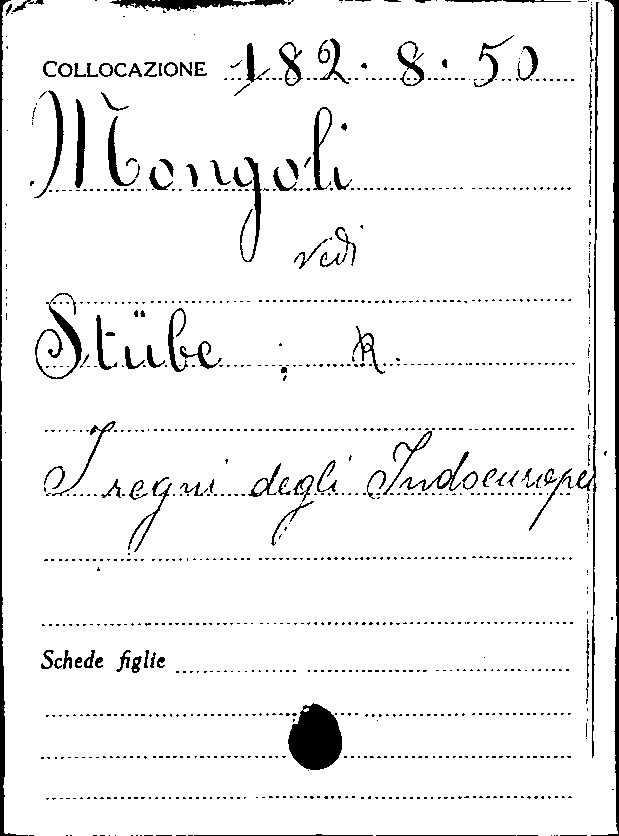 COLLOCAZIONE 182.8.50
Mongoli
vedi
Stübe ; R.
I regni degli Indoeuropei
Schede figlie